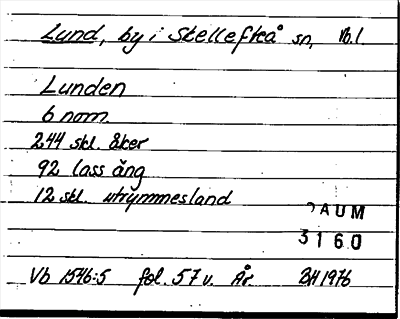 Lund, by i Skellefteå sn, Vb.l.
Lunden
6 nom.
244 skl. åker
92 lass äng
12 skl. utrymmesland
DAUM
3160
Vb 1546:5 fol. 57 v. År BH 1976